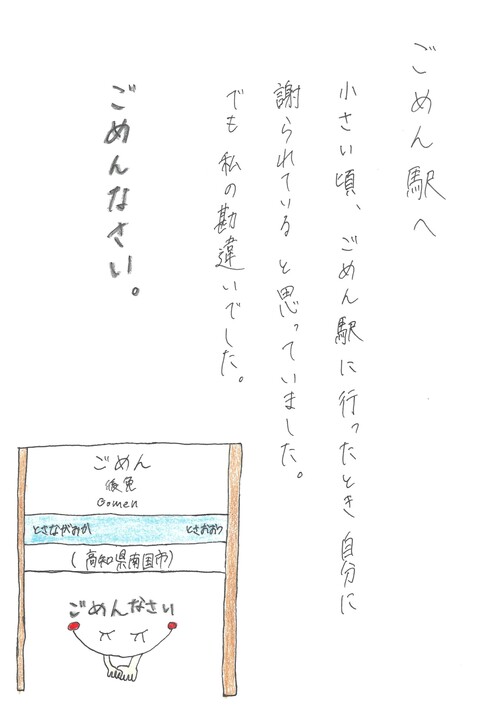 ごめん駅へ
小さい頃、ごめん駅に行ったとき自分に
謝られていると思っていました。
でも私の勘違いでした。
ごめんなさい。
ごめん
後免
Gomen
とさながおか とさおおつ
(高知県南国市)
ごめんなさい